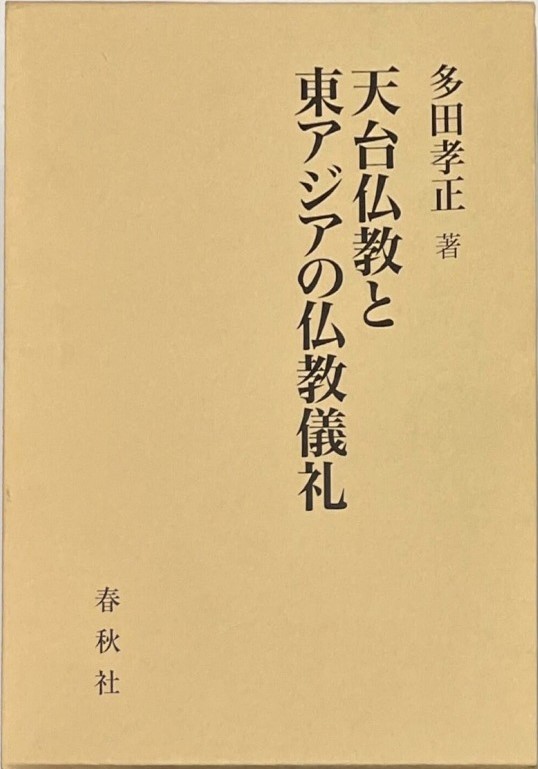 多田孝正 著
天台仏教と
東アジアの仏教儀礼
春秋社